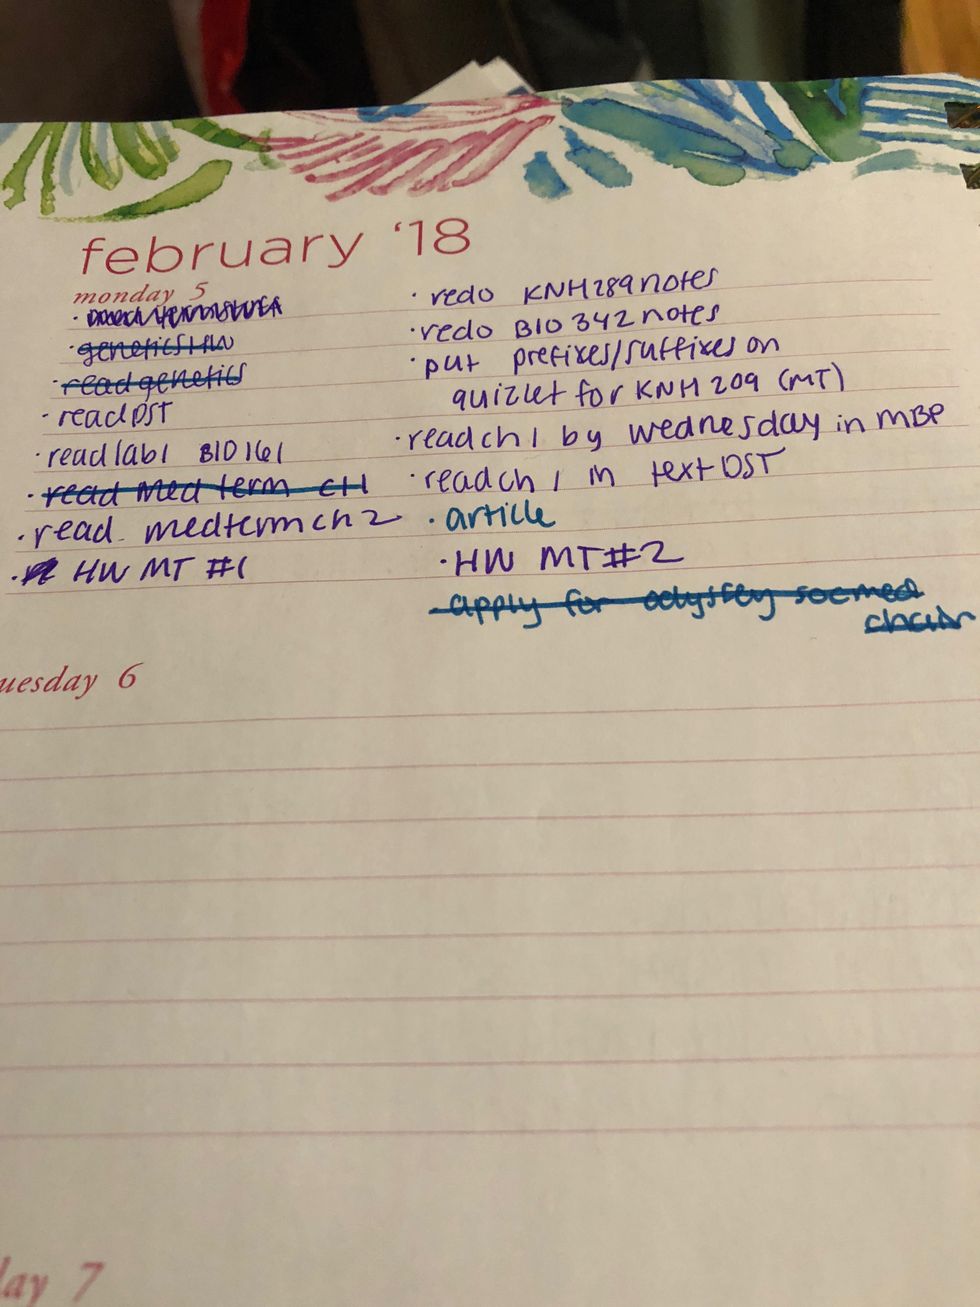 february '18
monday 5
· genetics HW
· read genetics
· read DST
· read lab 1 BIO 161
· read Med term ch 1
· read medterm ch 2
· HW MT #1
· redo KNH 289 notes
· redo BIO 342 notes
· put prefixes/suffixes on
quizlet for KNH 209 (MT)
· read ch 1 by wednesday in MBP
· read ch 1 in text DST
· article
· HW MT #2
apply for odyssey soc med
chair
uesday 6
day 7